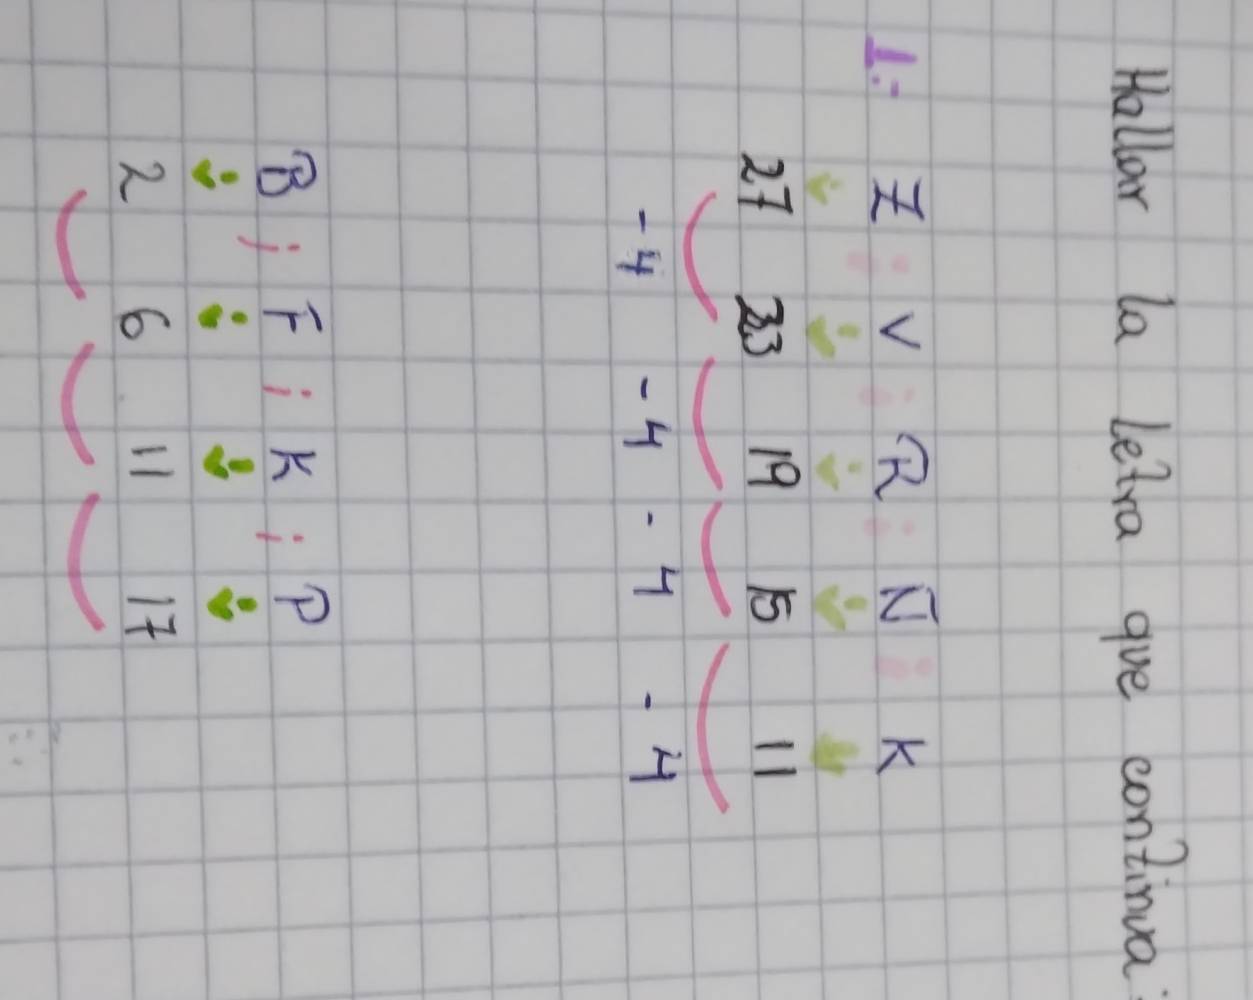 Hallar la letra que continua:
1:-
Z ; V ; R ; Ñ ; K
27 23 19 15 11
-4 -4 -4 -4
B ; F ; K ; P
2 6 11 17